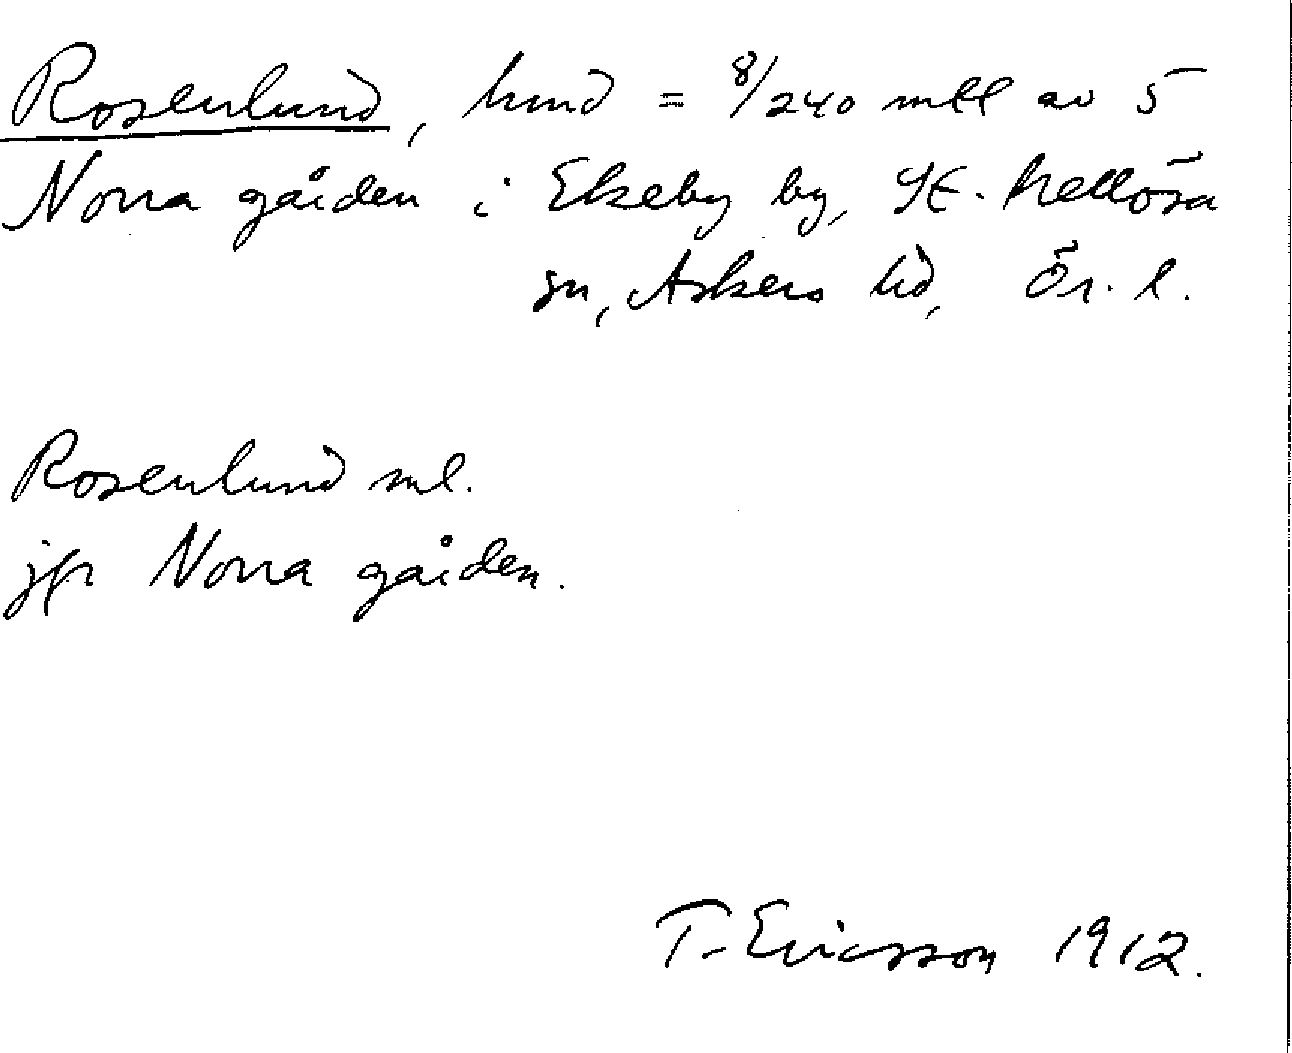 Rosenlund, hmd = 8/240 mtl av 5
Norra gården i Ekeby by, St. Mellösa
sn, Askers hd, Ör. l.
Rosenlund ml.
jfr Norra gården.
T. Ericsson 1912.